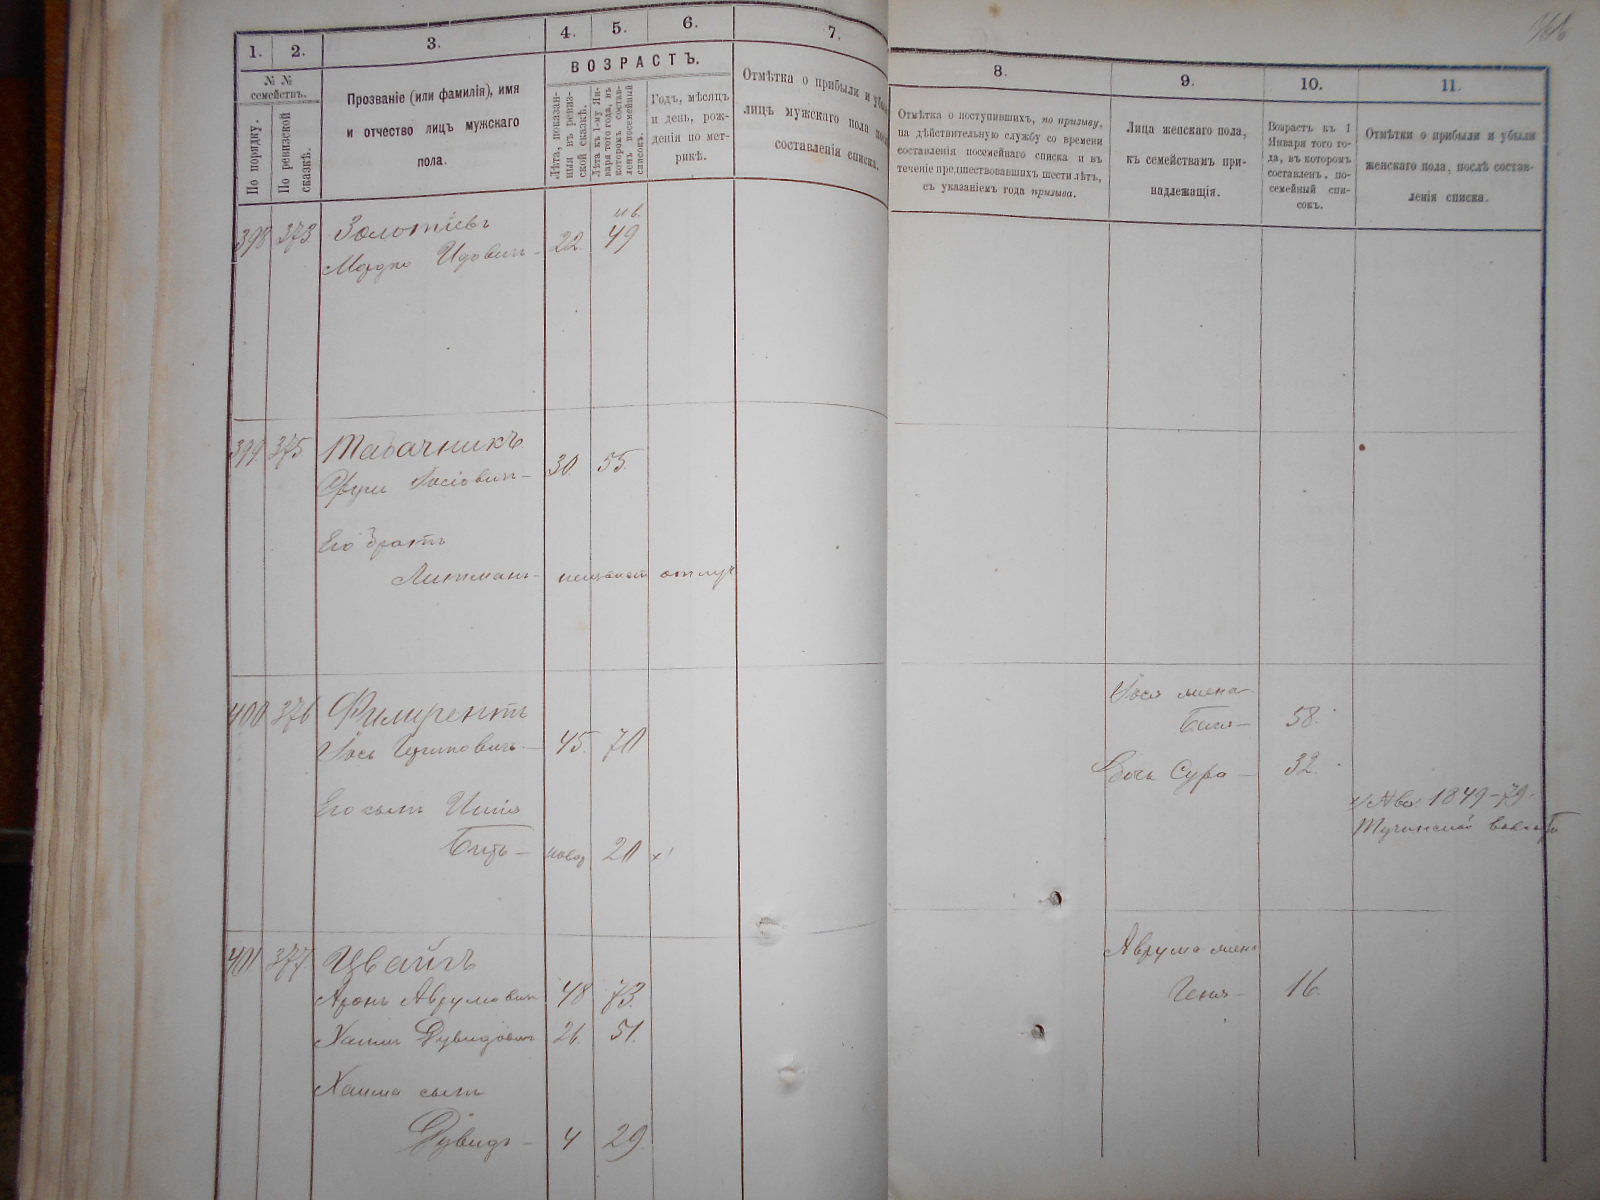 1. 2. 3. 4. 5. 6. 7. 8. 9. 10. 11.
№ №
семействъ.
По порядку.
По ревизской
сказкѣ.
Прозваніе (или фамилія), имя
и отчество лицъ мужскаго
пола.
ВОЗРАСТЪ.
Лѣта, показан-
ныя въ ревиз-
ской сказкѣ.
Лѣта къ 1-му Ян-
варя того года, въ
которомъ состав-
ленъ посемейный
списокъ.
Годъ, мѣсяцъ
и день, рож-
денія по мет-
рикѣ.
Отмѣтка о прибыли и
лицъ мужскаго пола
составленія списка.
Отмѣтка о поступившихъ, по призыву,
на дѣйствительную службу со времени
составленія посемейнаго списка и въ
теченіе предшествовавшихъ шести лѣтъ,
съ указаніемъ года призыва.
Лица женскаго пола,
къ семействамъ при-
надлежащія.
Возрастъ къ 1
Января того го-
да, въ которомъ
составленъ. по-
семейный спи-
сокъ.
Отмѣтки о прибыли и убыли
женскаго пола, послѣ состав-
ленія списка.
398 373 Золотіевъ
Мордко 22. 49
399 375 Табачникъ
30. 55.
Его братъ
Литманъ-
400 376
45. 70
Іося жена
58.
Дочь Сура - 32.
Его сынъ
20
1849-79-
401 377 Цвайгъ
Аронъ Аврумовичъ 48 73.
Хаимъ Дувидовичъ 26. 51.
Хаима сынъ
Дувидъ- 4 29.
Аврума жена
Геня- 16.